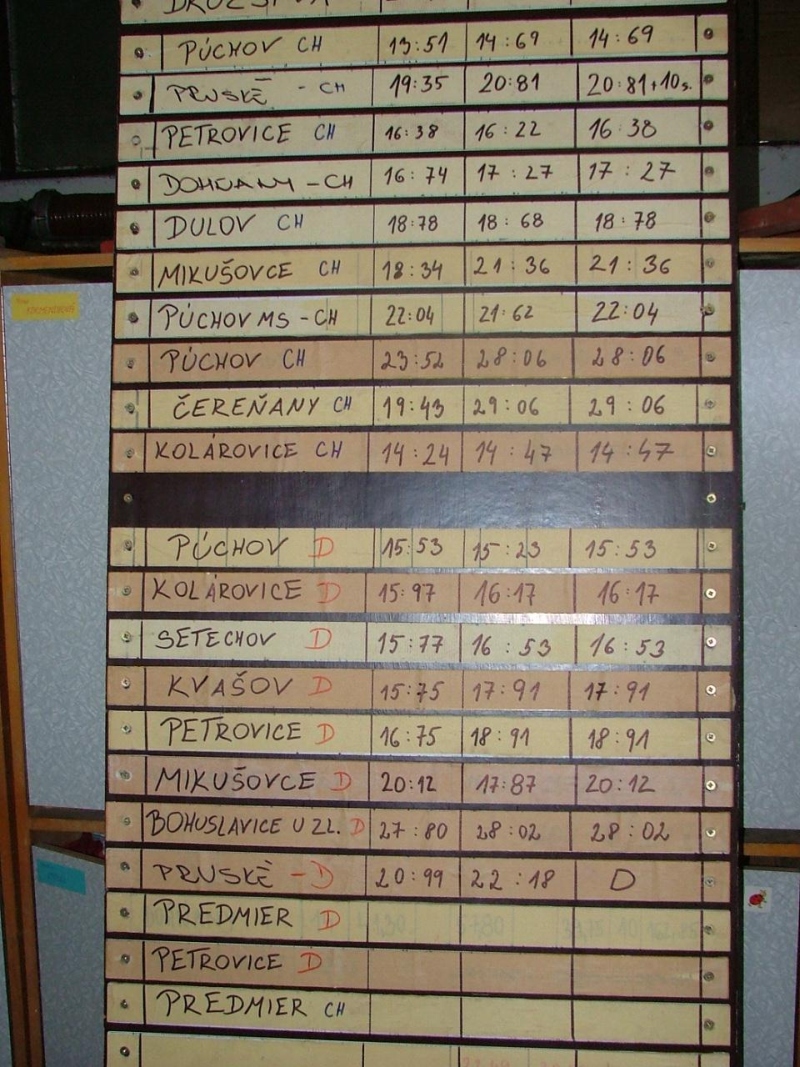 DRUŽSTVÁ
PÚCHOV CH 13:51 14:69 14:69
PRUSKÉ - CH 19:35 20:81 20:81+10s.
PETROVICE CH 16:38 16:22 16:38
DOHŇANY - CH 16:74 17:27 17:27
DULOV CH 18:78 18:68 18:78
MIKUŠOVCE CH 18:34 21:36 21:36
PÚCHOV MS - CH 22:04 21:62 22:04
PÚCHOV CH 23:52 28:06 28:06
ČEREŇANY CH 19:43 29:06 29:06
KOLÁROVICE CH 14:24 14:47 14:47
PÚCHOV D 15:53 15:23 15:53
KOLÁROVICE D 15:97 16:17 16:17
SETECHOV D 15:77 16:53 16:53
KVAŠOV D 15:75 17:91 17:91
PETROVICE D 16:75 18:91 18:91
MIKUŠOVCE D 20:12 17:87 20:12
BOHUSLAVICE U ZL. D 27:80 28:02 28:02
PRUSKÉ - D 20:99 22:18 D
PREDMIER D
PETROVICE D
PREDMIER CH